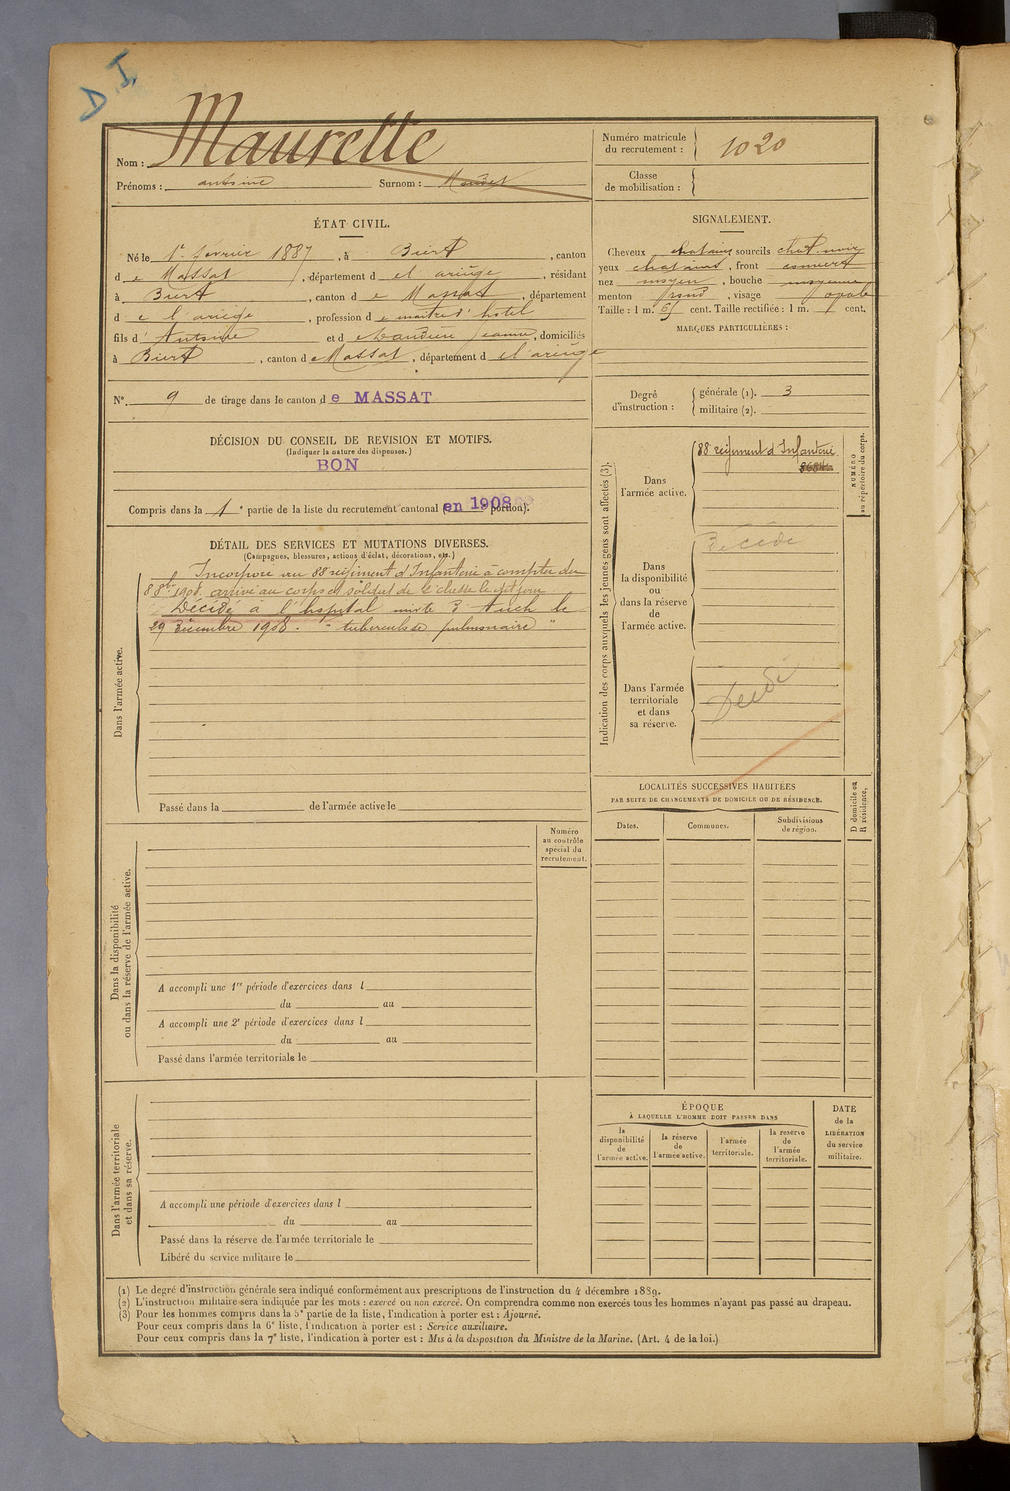 D I
Nom : Maurette
Prénoms : antoine Surnom :
Numéro matricule du recrutement : 1020
Classe de mobilisation :
ÉTAT CIVIL.
Né le 1er février 1887, à Biert, canton
de Massat, département de l'ariège, résidant
à Biert, canton de Massat, département
de l'ariège, profession de maitre d'hotel
fils d'Antoine et de Jeanne, domiciliés
à Biert, canton de Massat, département de l'ariège
N° 9 de tirage dans le canton de MASSAT
SIGNALEMENT.
Cheveux chatains sourcils chat. noir
yeux chatains, front couvert
nez moyen, bouche moyenne
menton rond, visage
Taille : 1 m. 65 cent. Taille rectifiée : 1 m. cent.
MARQUES PARTICULIÈRES :
Degré d'instruction : générale (1). 3
militaire (2).
DÉCISION DU CONSEIL DE REVISION ET MOTIFS.
(Indiquer la nature des dispenses.)
BON
Compris dans la 1e partie de la liste du recrutement cantonal en 1908 portion).
DÉTAIL DES SERVICES ET MUTATIONS DIVERSES.
(Campagnes, blessures, actions d'éclat, décorations, etc.)
Dans l'armée active.
Incorporé au 88 régiment d'Infanterie à compter du
8 8bre 1908. arrivé au corps et soldat de 2e classe le dit jour
Décédé a l'hopital mixte d'Auch le
29 Décembre 1908. "tuberculose pulmonaire"
Passé dans la de l'armée active le
Indication des corps auxquels les jeunes gens sont affectés (3).
Dans l'armée active.
88 régiment d'Infanterie
NUMÉRO au répertoire du corps.
Dans la disponibilité ou dans la réserve de l'armée active.
Décédé
Dans l'armée territoriale et dans sa réserve.
Décédé
LOCALITÉS SUCCESSIVES HABITÉES
PAR SUITE DE CHANGEMENTS DE DOMICILE OU DE RÉSIDENCE.
Dates. Communes. Subdivisions de région.
D domicile ou R résidence.
Dans la disponibilité ou dans la réserve de l'armée active.
Numéro au contrôle spécial du recrutement.
A accompli une 1re période d'exercices dans l
du au
A accompli une 2e période d'exercices dans l
du au
Passé dans l'armée territoriale le
Dans l'armée territoriale et dans sa réserve.
A accompli une période d'exercices dans l
du au
Passé dans la réserve de l'armée territoriale le
Libéré du service militaire le
ÉPOQUE
À LAQUELLE L'HOMME DOIT PASSER DANS
la disponibilité de l'armée active.
la réserve de l'armée active.
l'armée territoriale.
la réserve de l'armée territoriale.
DATE de la LIBÉRATION du service militaire.
(1) Le degré d'instruction générale sera indiqué conformément aux prescriptions de l'instruction du 4 décembre 1889.
(2) L'instruction militaire sera indiquée par les mots : exercé ou non exercé. On comprendra comme non exercés tous les hommes n'ayant pas passé au drapeau.
(3) Pour les hommes compris dans la 5e partie de la liste, l'indication à porter est : Ajourné.
Pour ceux compris dans la 6e liste, l'indication à porter est : Service auxiliaire.
Pour ceux compris dans la 7e liste, l'indication à porter est : Mis à la disposition du Ministre de la Marine. (Art. 4 de la loi.)